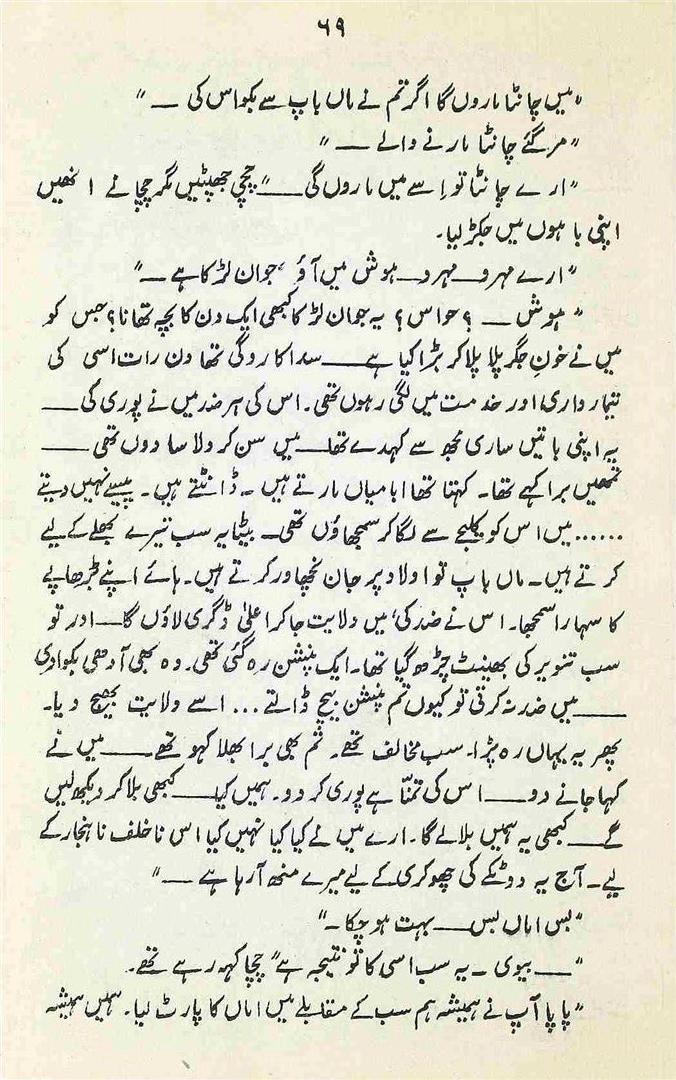 ۶۹
"میں چانٹا ماروں گا اگر تم نے ماں باپ سے بکواس کی ـــ"
"مر گئے چانٹا مارنے والے ـــ"
"ارے چانٹا تو اِسے میں ماروں گی ـــ" چچی جھپٹیں مگر چچا نے انھیں
اپنی باہوں میں جکڑ لیا۔
"ارے مہرو ـــ مہرو ـــ ہوش میں آؤ، جوان لڑکا ہے ـــ"
"ہوش ـــ ؟ حواس؟ یہ جوان لڑکا کبھی ایک دن کا بچہ تھا نا؟ جس کو
میں نے خونِ جگر پلا پلا کر بڑا کیا ہے ـــ سدا کا روگی تھا دن رات اسی کی
تیمارداری اور خدمت میں لگی رہوں تھی۔ اس کی ہر ضد میں نے پوری کی ـــ
یہ اپنی باتیں ساری مجھ سے کہدے تھا ـــ میں سن کر دلاسا دوں تھی ـــ
تمھیں برا کہے تھا۔ کہتا تھا ابا میاں مارتے ہیں۔ ڈانٹتے ہیں۔ پیسے نہیں دیتے
...... میں اس کو کلیجے سے لگا کر سمجھاؤں تھی۔ بیٹا یہ سب تیرے بھلے کے لیے
کرتے ہیں۔ ماں باپ تو اولاد پر جان نچھاور کرتے ہیں۔ ہائے اپنے بڑھاپے
کا سہارا سمجھا۔ اس نے ضد کی، میں ولایت جا کر اعلیٰ ڈگری لاؤں گا ـــ اور تو
سب تنویر کی بھینٹ چڑھ گیا تھا۔ ایک پنشن رہ گئی تھی۔ وہ بھی آدھی بکوا دی
ـــ میں ضد نہ کرتی تو کیوں تم پنشن بیچ ڈالتے ... اسے ولایت بھیج دیا۔
پھر یہ یہاں رہ پڑا۔ سب مخالف تھے۔ تم بھی برا بھلا کہو تھے ـــ میں نے
کہا جانے دو ـــ اس کی تمنّا ہے پوری کر دو۔ ہمیں کیا ـــ کبھی بلا کر دیکھ لیں
گے ـــ کبھی یہ ہمیں بلا لے گا۔ ارے میں نے کیا کیا نہیں کیا اس ناخلف ناہنجار کے
لیے۔ آج یہ دو ٹکے کی چھوکری کے لیے میرے منھ آ رہا ہے ـــ"
"بس اماں بس ـــ بہت ہو چکا۔"
"ـــ بیوی۔ یہ سب اسی کا تو نتیجہ ہے" چچا کہہ رہے تھے۔
"پاپا آپ نے ہمیشہ ہم سب کے مقابلے میں اماں کا پارٹ لیا۔ ہمیں ہمیشہ